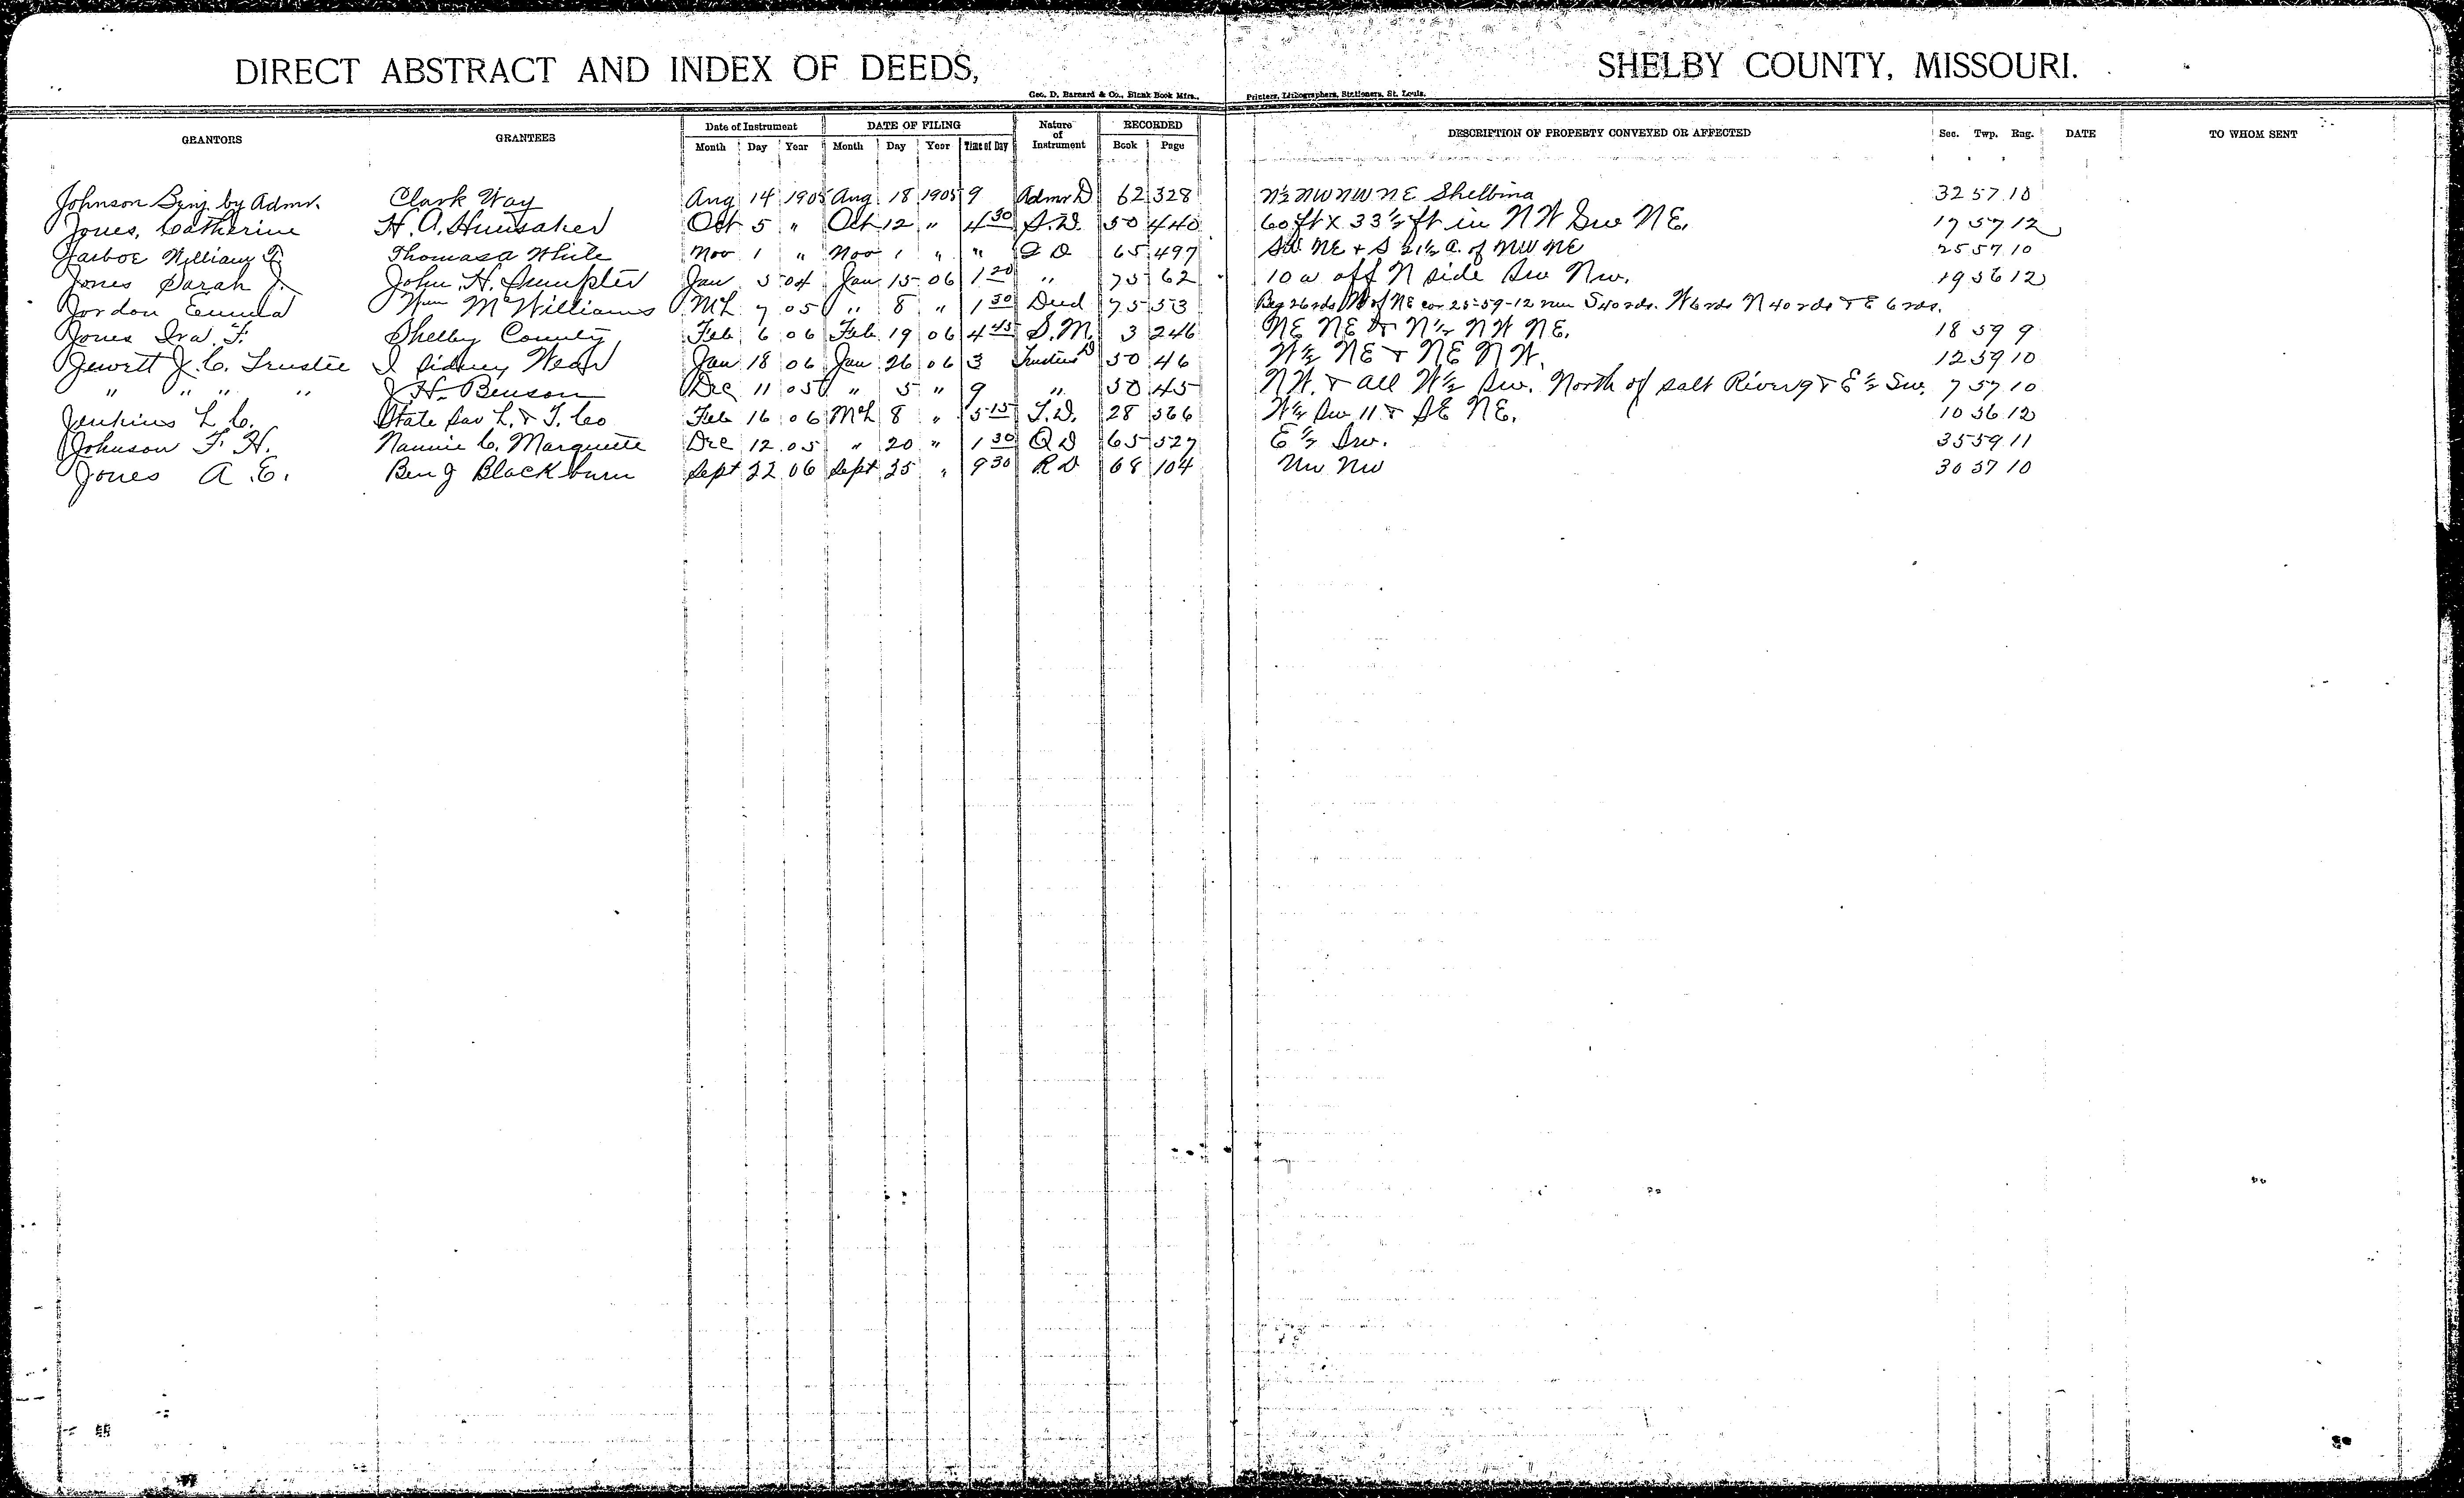 DIRECT ABSTRACT AND INDEX OF DEEDS, SHELBY COUNTY, MISSOURI.
Geo. D. Barnard & Co., Blank Book Mfrs., Printers, Lithographers, Stationers, St. Louis.
GRANTORS GRANTEES Date of Instrument DATE OF FILING Nature of Instrument RECORDED DESCRIPTION OF PROPERTY CONVEYED OR AFFECTED Sec. Twp. Rng. DATE TO WHOM SENT
Month Day Year Month Day Year Time of Day Book Page
Johnson Benj by Admr. Clark Way Aug 14 1905 Aug 18 1905 9 Admr D 62 328 N½ NW NW NE Shelbina 32 57 10
Jones, Catherine H. A. Hunsaker Oct 5 " Oct 12 " 4 30 S.D. 50 440 60 ft X 33½ ft in N W Sw N E. 17 57 12
Jarboe William T. Thomas a White Nov 1 " Nov 1 " " Q D 65 497 SW NE + S 21½ a. of NW NE 25 57 10
Jones Sarah J. John. H. Sumpter Jan 5 04 Jan 15 06 1 20 " 75 62 10 a off N side Sw Nw. 19 56 12
Jordon Emma Wm McWilliams Mch 7 05 " 8 " 1 30 Deed 75 53 Beg 26 rds W of NE cor 25-59-12 run S 40 rds. W 6 rds N 40 rds & E 6 rds.
Jones Ira. F. Shelby County Feb 6 06 Feb 19 06 4 45 S.M. 3 246 NE NE & N½ N W NE. 18 59 9
Jewett J. C. Trustee I Sidney Wear Jan 18 06 Jan 26 06 3 Trustees D 50 46 W½ NE & NE N W. 12 59 10
" " " " J. H. Benson Dec 11 05 " 5 " 9 " 50 45 N W. & all W½ Sw. North of Salt River 9 & E½ Sw. 7 57 10
Jenkins L C. State Sav L. & T. Co Feb 16 06 Mch 8 " 5 15 T.D. 28 566 W½ Sw 11 & SE NE. 10 56 12
Johnson F. H. Nannie C. Marquette Dec 12 05 " 20 " 1 30 Q D 65 527 E½ Sw. 35 59 11
Jones A. E. Benj Blackburn Sept 22 06 Sept 25 " 9 30 R D 68 104 Nw Nw 30 57 10